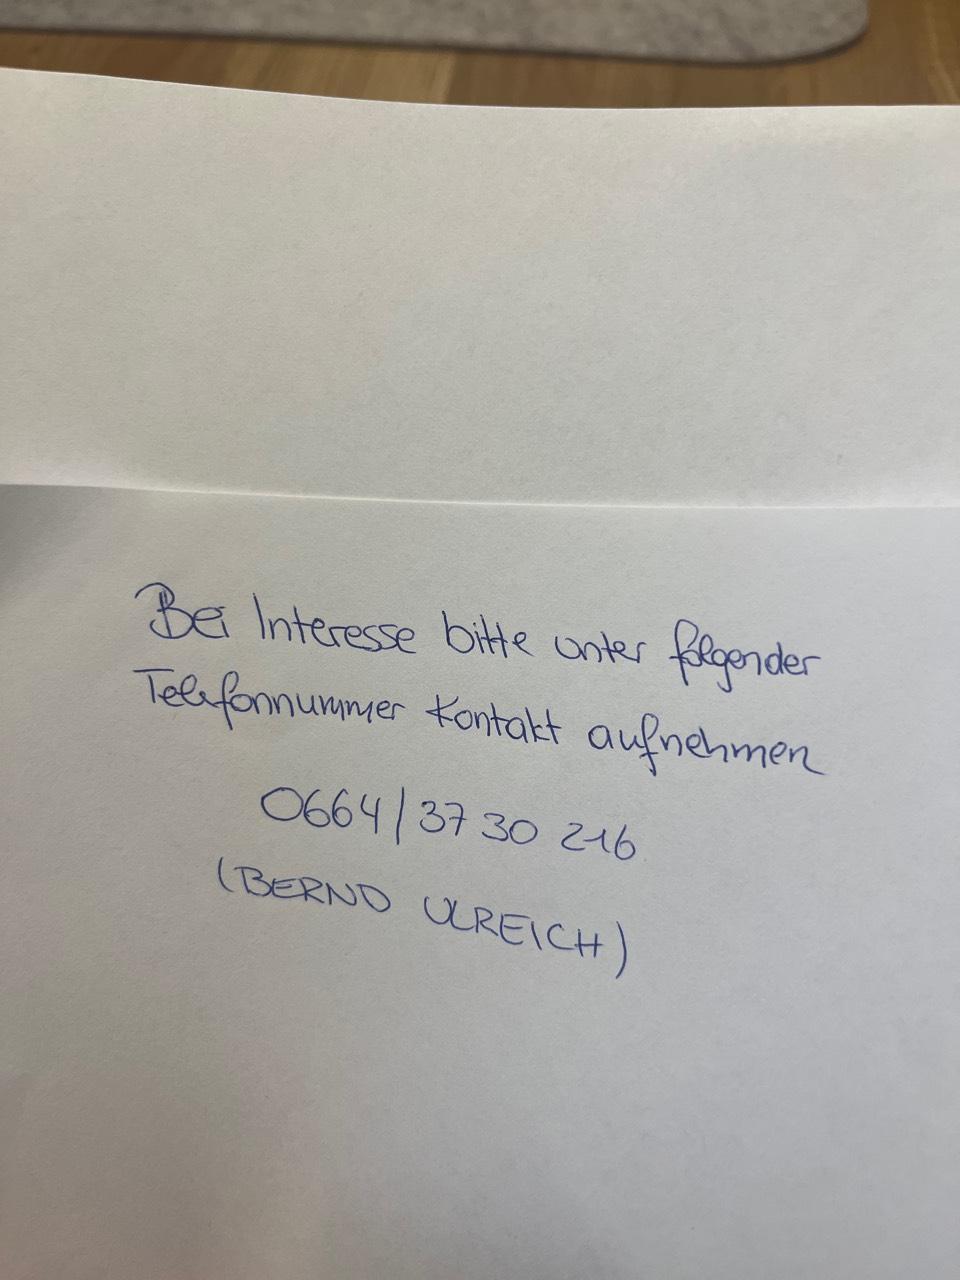 Bei Interesse bitte unter folgender
Telefonnummer Kontakt aufnehmen
0664/37 30 216
(BERND ULREICH)